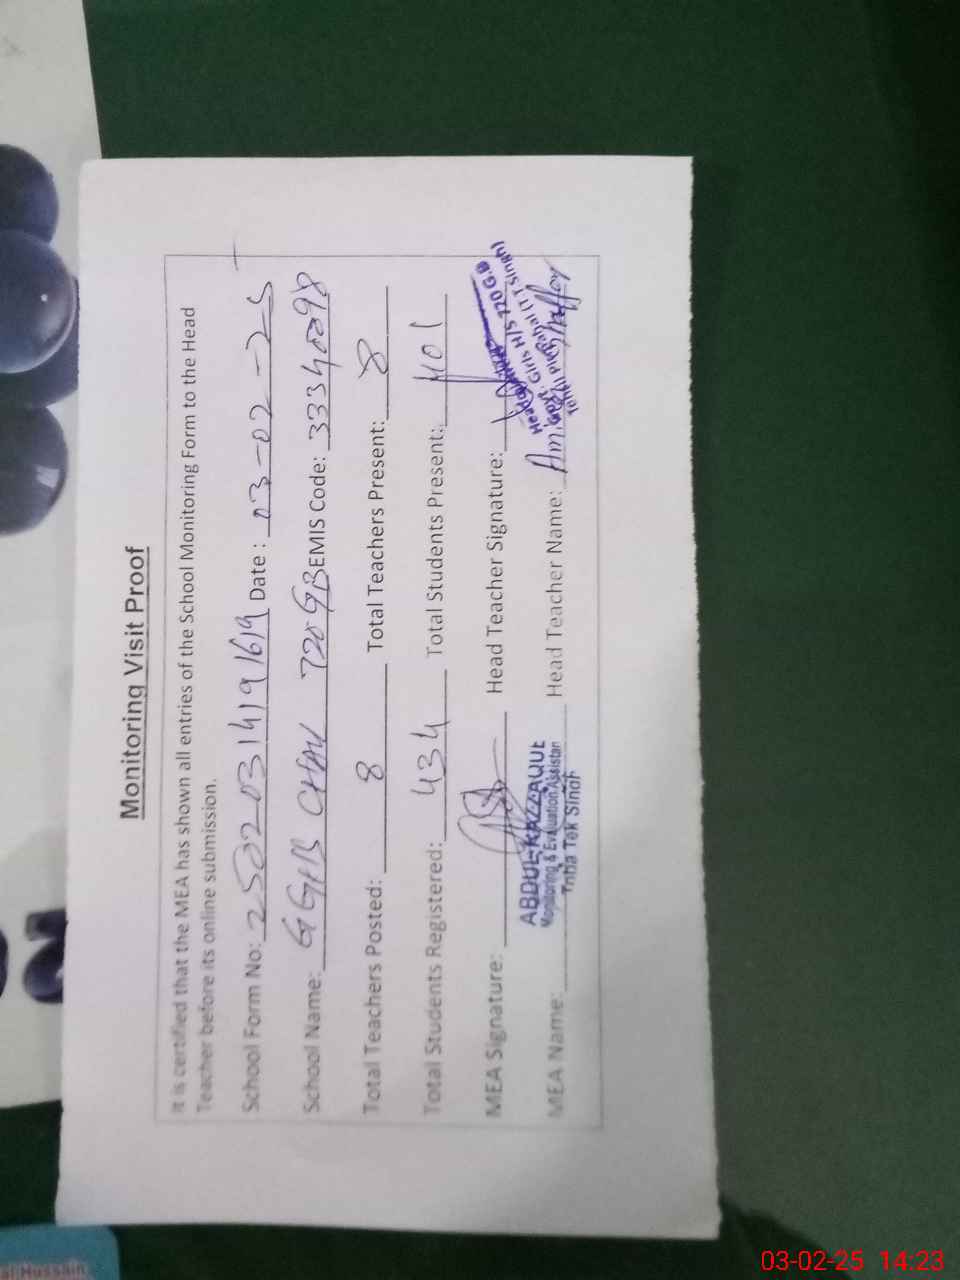 Monitoring Visit Proof
It is certified that the MEA has shown all entries of the School Monitoring Form to the Head
Teacher before its online submission.
School Form No: 25020314191619 Date : 03-02-25
School Name: GGHS CHAK 720 GB EMIS Code: 33340098
Total Teachers Posted: 8 Total Teachers Present: 8
Total Students Registered: 434 Total Students Present: 401
MEA Signature: Head Teacher Signature:
Govt. Girls H/S 720 G.B
ABDUL RAZZAQUE
Monitoring & Evaluation Assistan
Toba Tek Singh
MEA Name: Head Teacher Name:
al Hussain
03-02-25 14:23